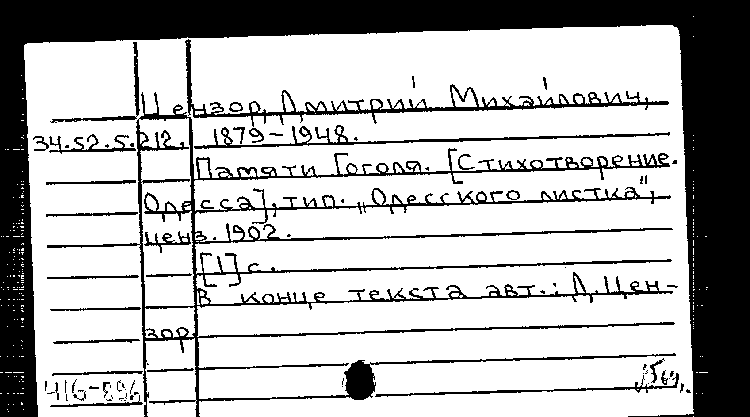 Цензор, Дмитрий Михайлович,
34.52.5.212. 1879-1948.
Памяти Гоголя. [Стихотворение.
Одесса], тип. „Одесского листка",
ценз. 1902.
[1] с.
В конце текста авт.: Д. Цен-
зор.
416-896